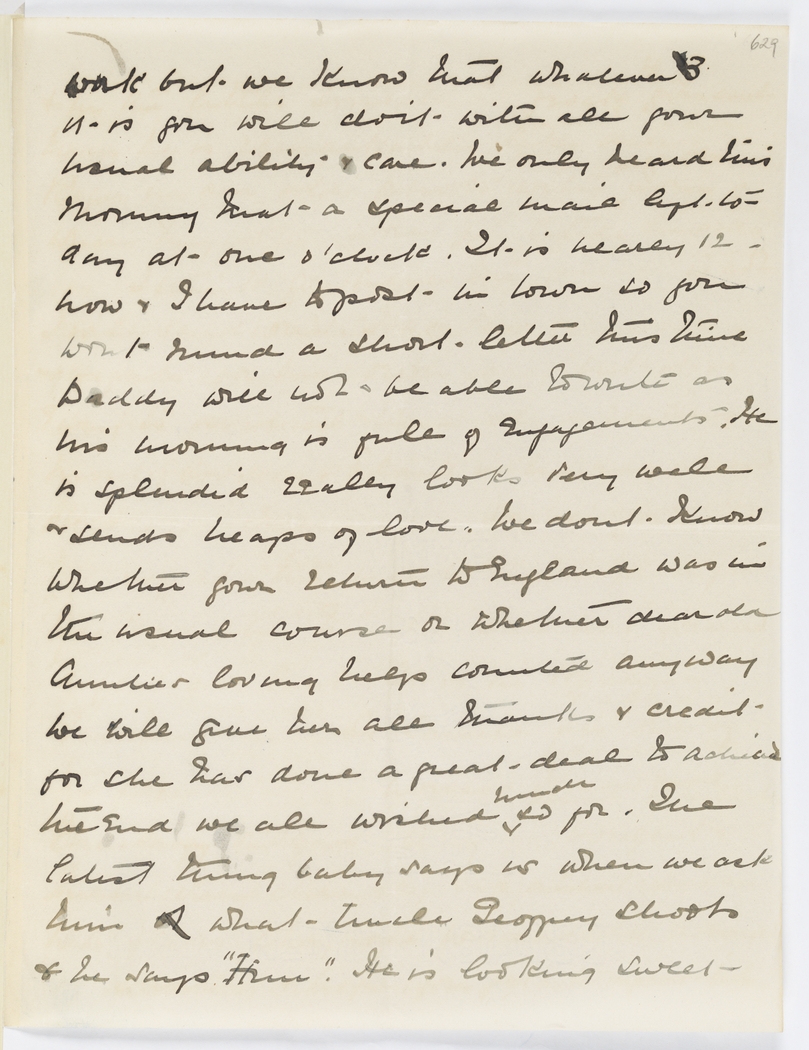 629
work but we know that whatever
it is you will do it with all your
usual ability & care. We only heard this
morning that a special mail left to-
day at one o'clock. It is nearly 12
now & I have to post in town so you
won't mind a short letter this time
Daddy will not be able to write as
his morning is full of Engagements. He
is splendid really looks very well
& sends heaps of love. We dont know
whether your return to England was in
the usual course or whether dear old
Aunties loving helps counted anyway
we will give her all thanks & credit
for she has done a great deal to achieve
the End we all wished so much for. The
latest thing baby says is when we ask
him what Uncle Geoffrey shoots
& he says "Hun". He is looking sweet